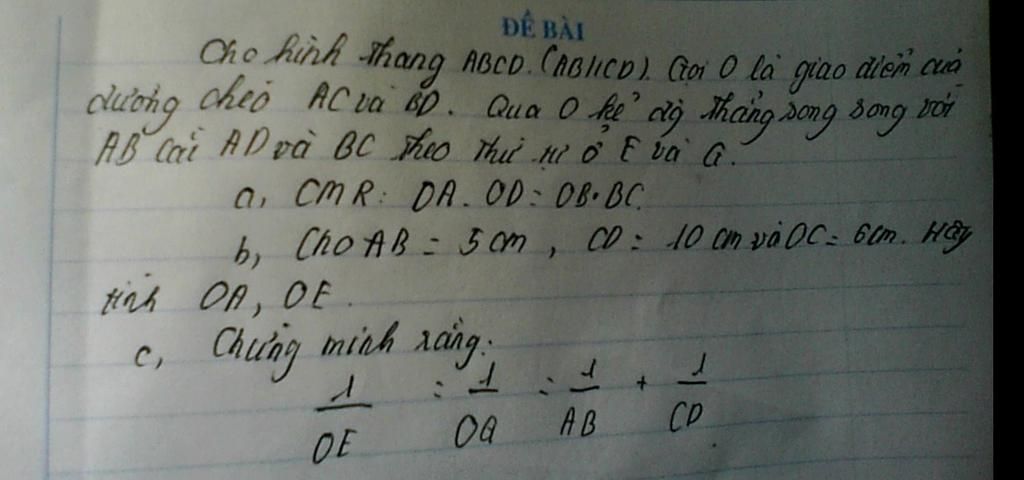 ĐỀ BÀI
Cho hình thang ABCD. (AB//CD). Gọi O là giao điểm của
đường chéo AC và BD. Qua O kẻ đg thẳng song song với
AB cắt AD và BC theo thứ tự ở E và G.
a, CMR: OA. OD = OB. BC.
b, Cho AB = 5 cm, CD = 10 cm và OC = 6cm. Hãy
tính OA, OE.
c, Chứng minh rằng:
1/OE = 1/OG = 1/AB + 1/CD.